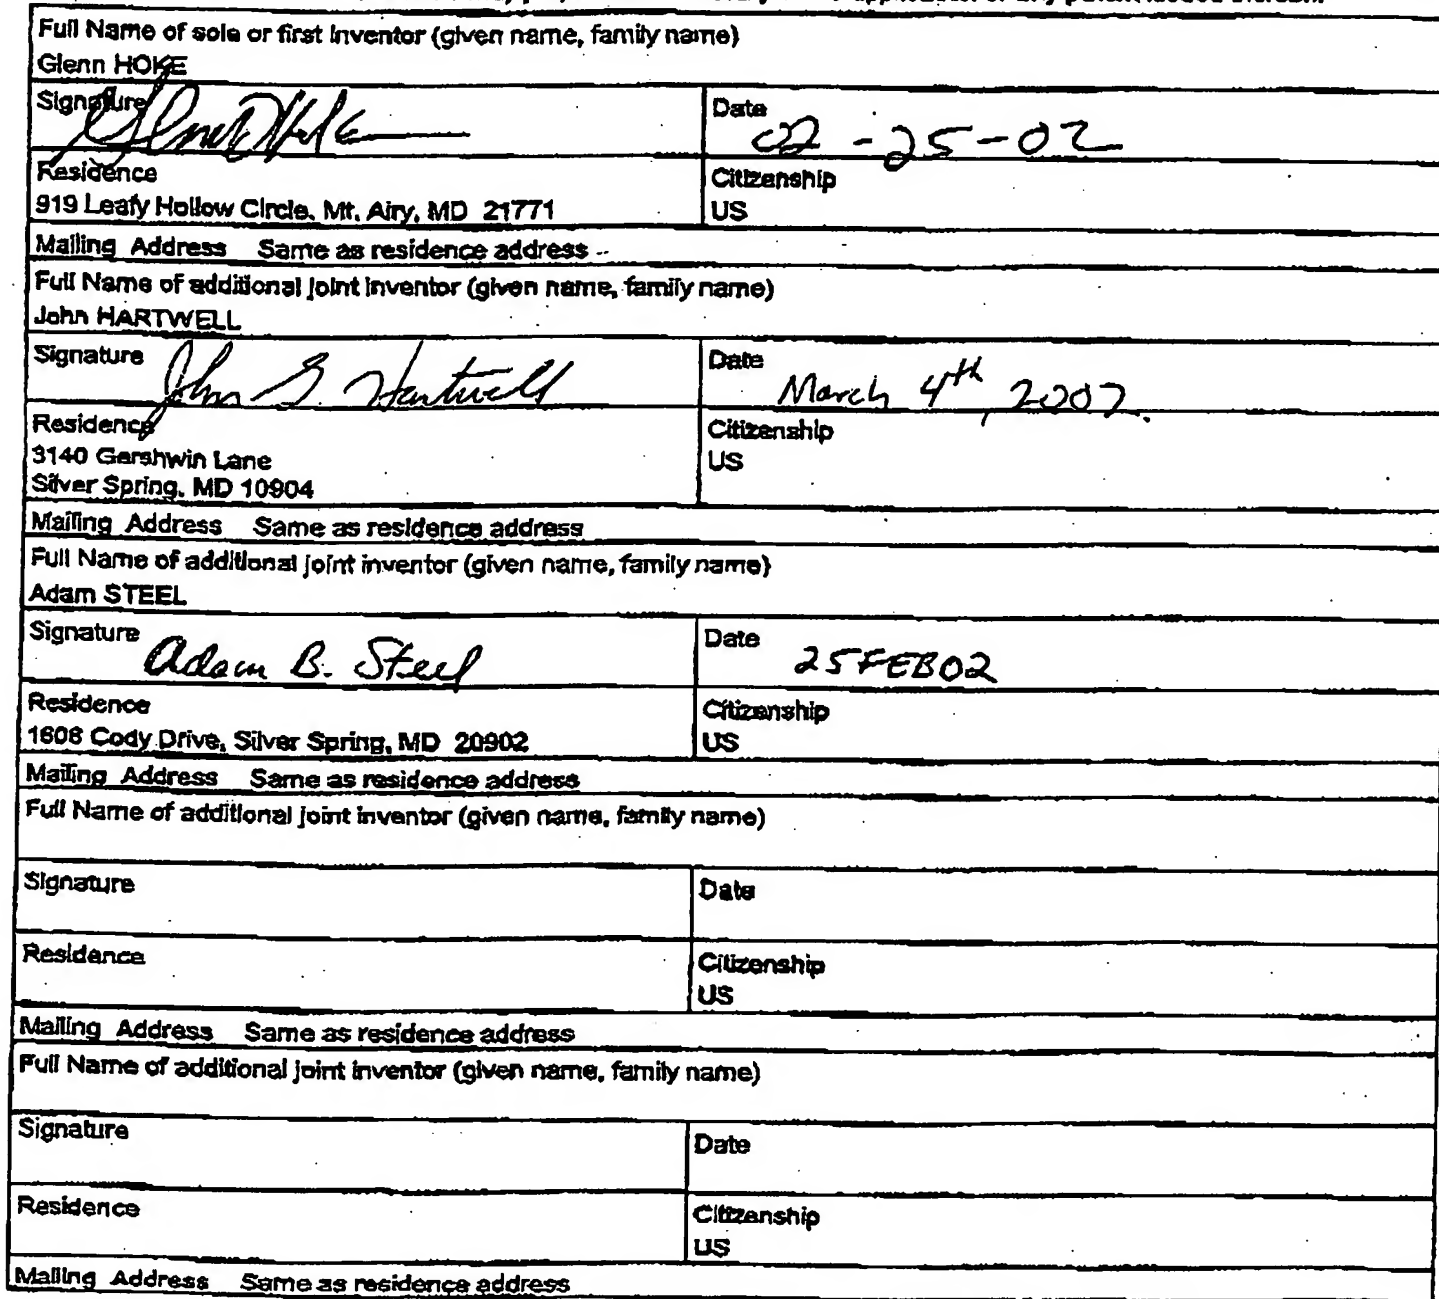 Full Name of sole or first inventor (given name, family name)
Glenn HOKE
Signature
Date
02-25-02
Residence
919 Leafy Hollow Circle, Mt. Airy, MD 21771
Citizenship
US
Mailing Address Same as residence address
Full Name of additional joint inventor (given name, family name)
John HARTWELL
Signature John G. Hartwell
Date
March 4th, 2002.
Residence
3140 Gershwin Lane
Silver Spring, MD 10904
Citizenship
US
Mailing Address Same as residence address
Full Name of additional joint inventor (given name, family name)
Adam STEEL
Signature Adam B. Steel
Date 25FEB02
Residence
1608 Cody Drive, Silver Spring, MD 20902
Citizenship
US
Mailing Address Same as residence address
Full Name of additional joint inventor (given name, family name)
Signature
Date
Residence
Citizenship
US
Mailing Address Same as residence address
Full Name of additional joint inventor (given name, family name)
Signature
Date
Residence
Citizenship
US
Mailing Address Same as residence address